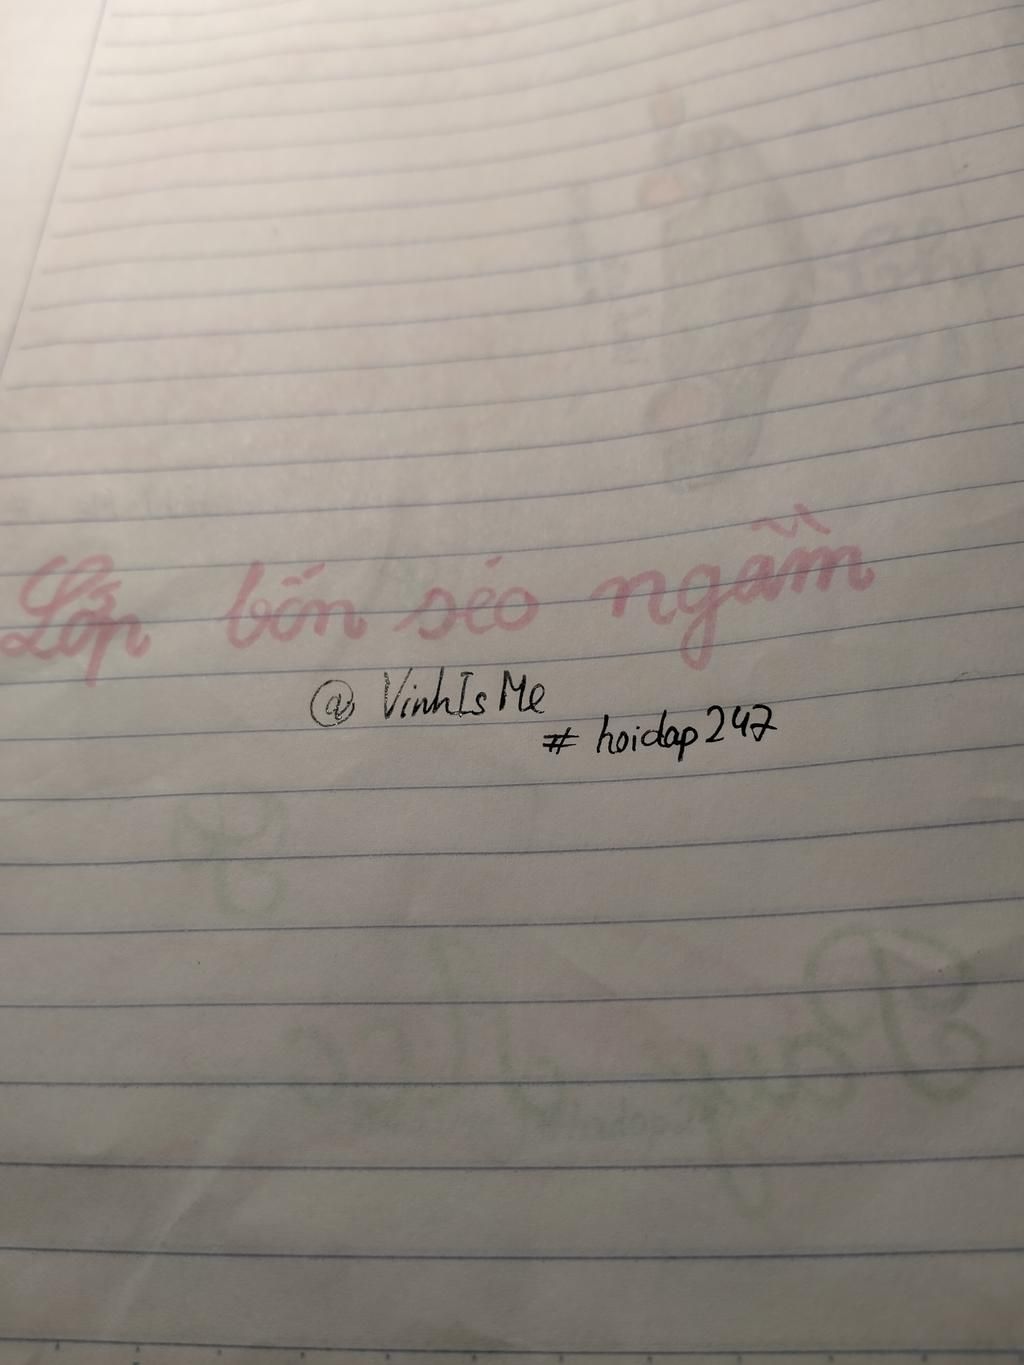 Lớp bốn séo ngầm
@ VinhIsMe
# hoidap247